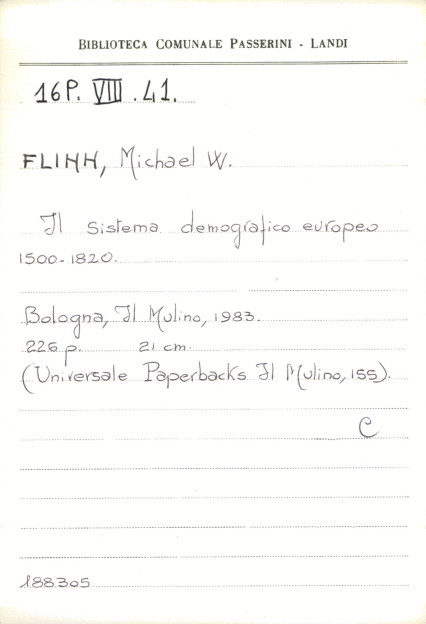 BIBLIOTECA COMUNALE PASSERINI - LANDI
16P. VIII. 41.
FLINN, Michael W.
Il sistema demografico europeo
1500-1820.
Bologna, Il Mulino, 1983.
226 p. 21 cm.
(Universale Paperbacks Il Mulino, 155).
C
188305